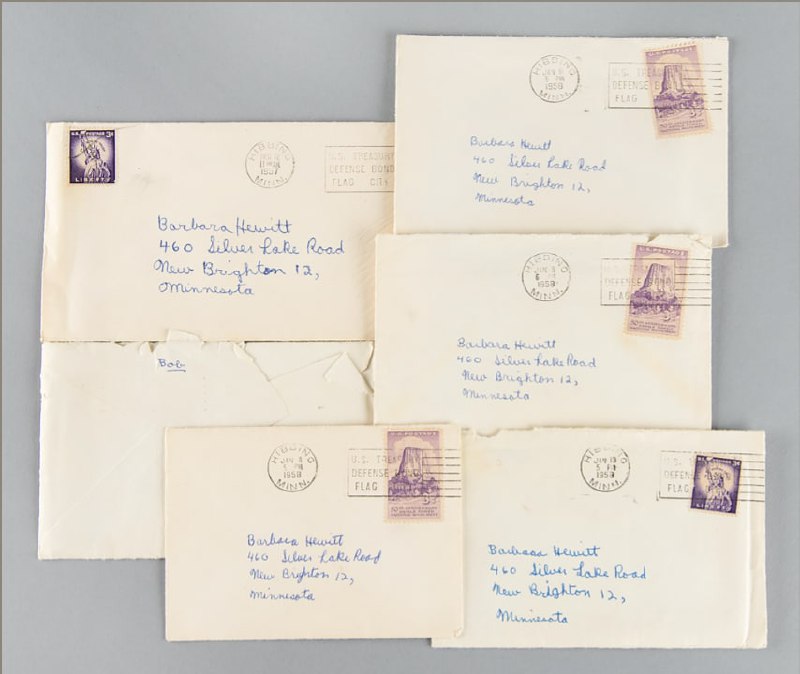 U.S. POSTAGE 3¢
LIBERTY
HIBBING
1957
MINN.
U.S. TREASURY
DEFENSE BOND
FLAG CITY
Barbara Hewitt
460 Silver Lake Road
New Brighton 12,
Minnesota
Bob
HIBBING
JAN
PM
1958
MINN.
U.S. TREAS
DEFENSE B
FLAG
Barbara Hewitt
460 Silver Lake Road
New Brighton 12,
Minnesota
HIBBING
JAN
6 PM
1958
MINN.
DEFENSE BOND
FLAG
U.S. POSTAGE
3¢
Barbara Hewitt
460 Silver Lake Road
New Brighton 12,
Minnesota
HIBBING
JAN
5 PM
1958
MINN.
U.S. TREAS
DEFENSE
FLAG
U.S. POSTAGE
3¢
Barbara Hewitt
460 Silver Lake Road
New Brighton 12,
Minnesota
HIBBING
JAN 13
5 PM
1958
MINN.
U.S.
DEFENSE
FLAG
LIBERTY
Barbara Hewitt
460 Silver Lake Road
New Brighton 12,
Minnesota